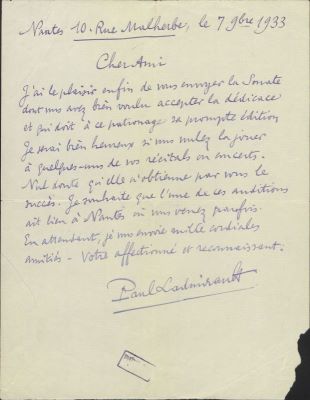 Nantes 10. Rue Malherbe, le 7 9bre 1933
Cher Ami
J'ai le plaisir enfin de vous envoyer la Sonate
dont vous avez bien voulu accepter la dédicace
et qui doit à ce patronage sa prompte édition
Je serai bien heureux si vous voulez la jouer
à quelques-uns de vos récitals ou concerts.
Nul doute qu'elle n'obtienne par vous le
succès. Je souhaite que l'une de ces auditions
ait lieu à Nantes où vous venez parfois.
En attendant, je vous envoie mille cordiales
amitiés - Votre affectionné et reconnaissant.
Paul Ladmirault